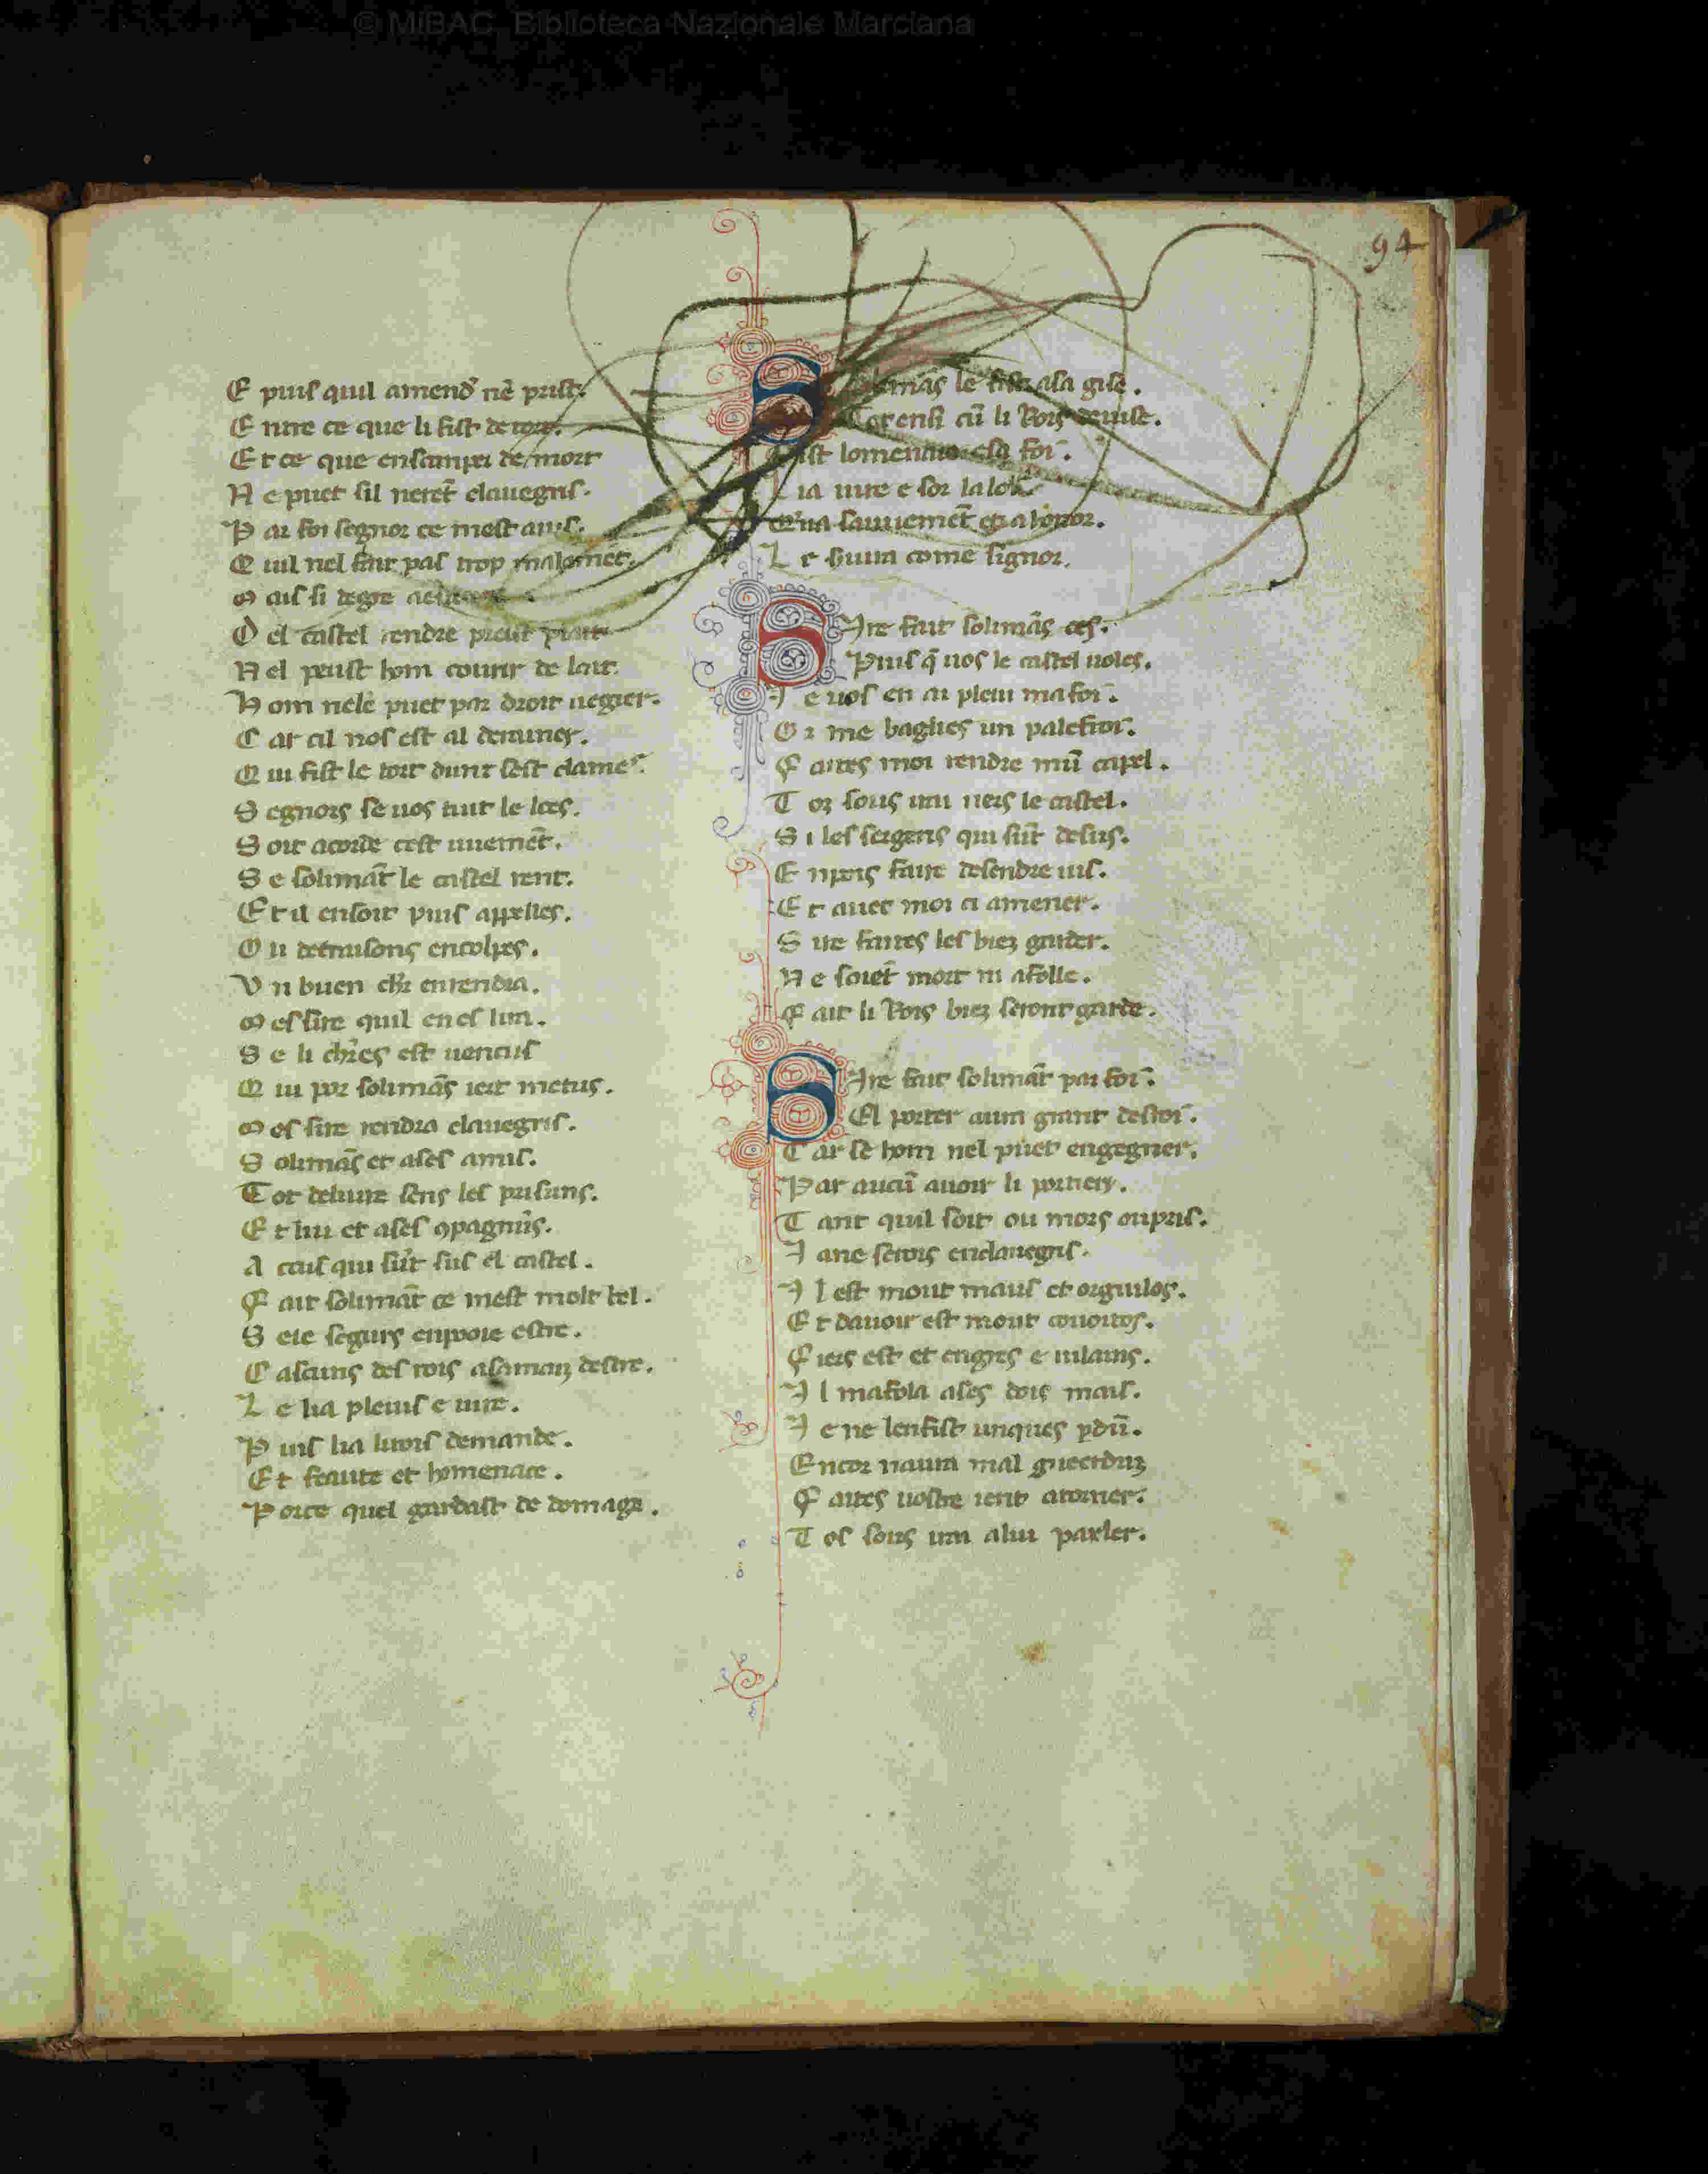 © MiBAC. Biblioteca Nazionale Marciana
94
E puis quil amend' nē prist.
E nire ce que li fist de
Et ce que enscampa de mort
N e puet sil neret̄ clauegris.
P ar foi segnor ce mest auis.
Q uil nel fait pas trop malomēt.
M ais si degre
D el castel rendre preist
N el peust hom courir de lait.
H om nele puet par droit uegier.
C ar cil nos est al deraines.
Q ui fist le tort dunt sest clames.
S egnors se uos tuit le loes.
S oit acorde cest uuemēt.
S e solimāt le castel rent.
Et il ensoit puis appelles.
O u detraisons encolpes.
V n buen chr entendra.
M essire quil en es lira.
S e li chres est uencus
Q ui por solimās iert metus.
M es sire rendra clauegris.
S olimās et ases amis.
Tot deliure sens les prisuns.
Et lui et ases 9pagnūs.
A ceus qui sūt sus el castel.
F ait solimāt ce mest molt bel.
S eie segurs enpoie estre.
C ascuns des rois asaman destre.
L e lia pleuis e iure.
P uis lia lirois demande.
Et feaute et homenace.
P orce quel gardast de domage.
S olimās le fist asa gise.
Torensi cū li Rois deuise.
foi.
L ia iure e sor la loi
Q'na sauuemēt et a honor.
L e siuira come signor.
S Ire fait solimās ces.
Puis q̄ uos le castel uoles.
I e uos en ai pleui ma foi.
O r me baglies un palefroi.
F aites moi rendre mū capel.
T oz sous irai uers le castel.
S i les sergens qui sūt desus.
E npois faire desendre ius.
Et auec moi ci amener.
S ire faites les bien garder.
N e soiet̄ mort ni afolle.
F ait li Rois bien seront garde.
S Ire fait solimāt par foi.
El porter aura grant destroi.
C ar se hom nel puet engegner.
Par aucū auoir li portiers.
T ant quil soit ou mors oupris.
I ane serois enclauegris.
I l est mout maus et orguilos.
Et dauoir est mout couoitos.
F iers est et engres e uilains.
I l mafola ases dois mais.
I e ne lenfist unques pdū.
Encor naura mal gueerdun
F aites uostre ient atorner.
T os sous irai alui parler.